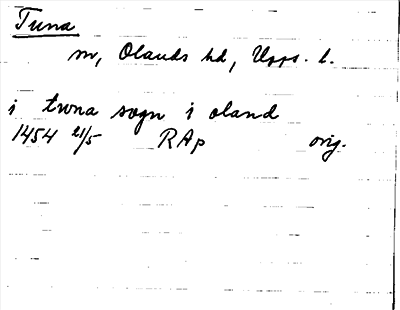 Tuna
sn, Olands hd, Upps. l.
i twna sogn i oland
1454 21/5 RAp orig.